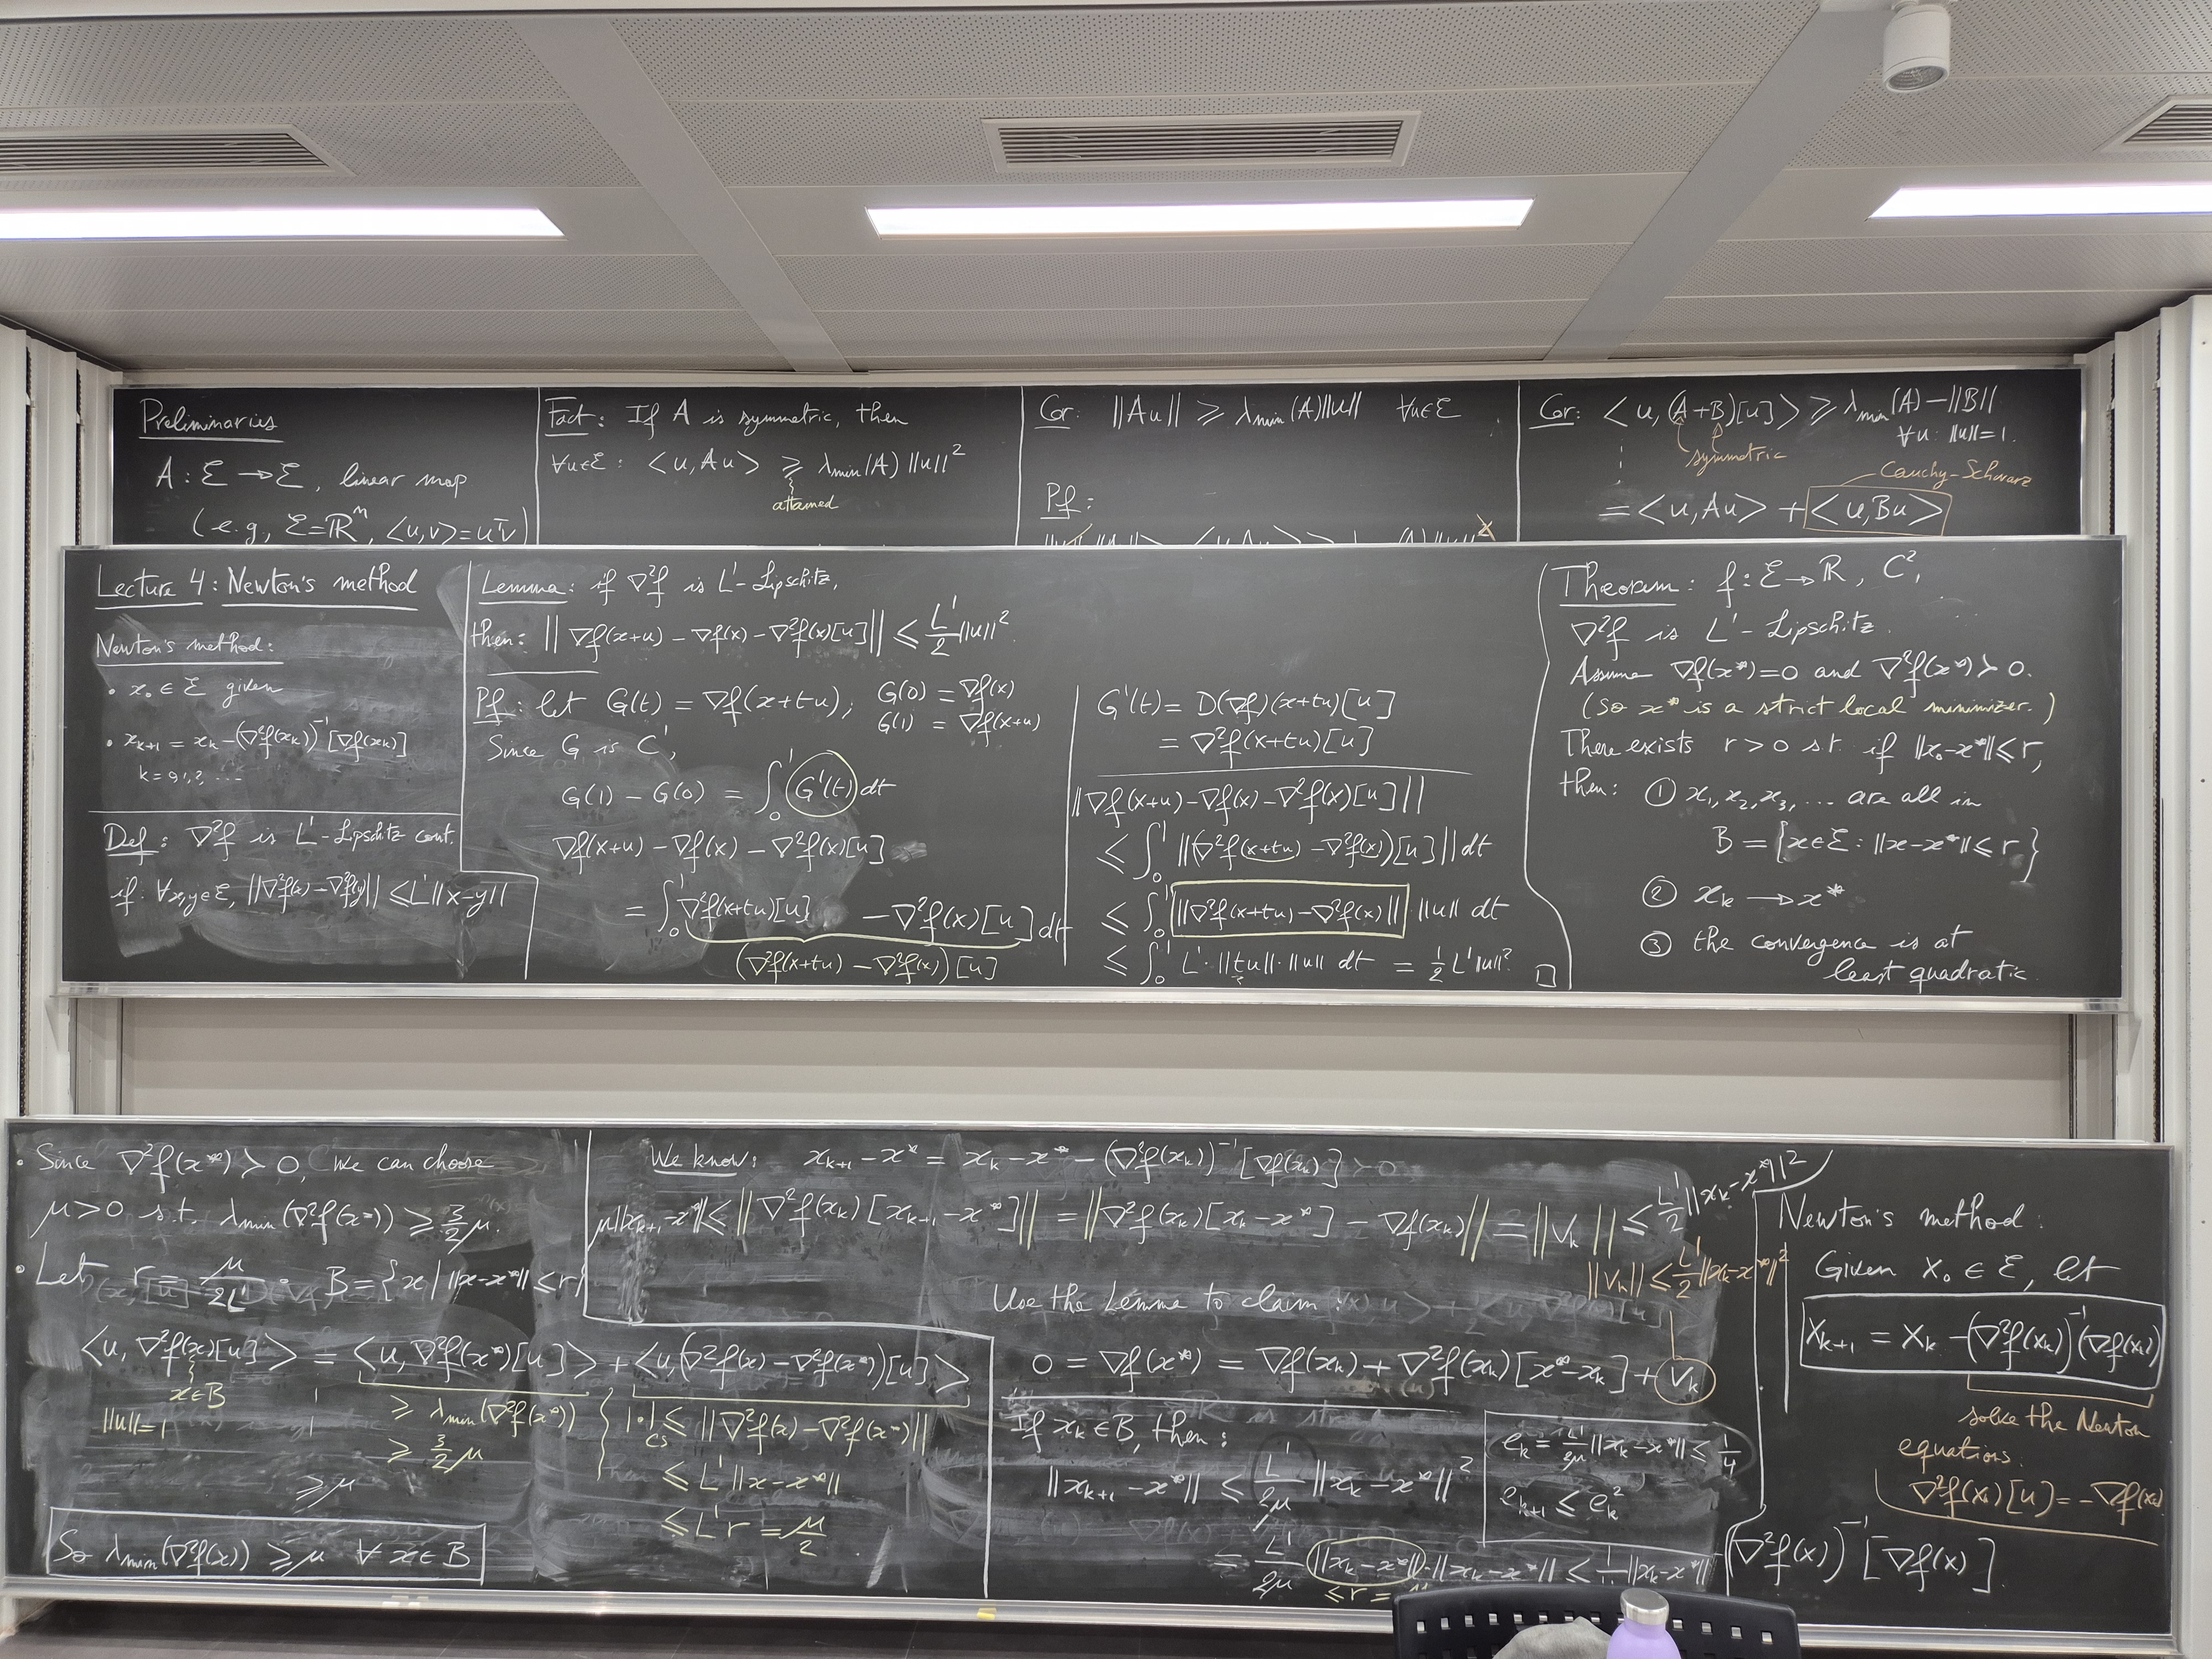 Preliminaries
A : ℰ → ℰ, linear map
(e.g., ℰ = ℝⁿ, <u,v> = uᵀv)
Fact: If A is symmetric, then
∀u∈ℰ : <u, Au> ≥ λmin(A) ||u||²
attained
Cor: ||Au|| ≥ λmin(A)||u|| ∀u∈ℰ
Pf:
Cor: <u, (A+B)[u]> ≥ λmin(A) − ||B||
∀u: ||u||=1.
symmetric
Cauchy-Schwarz
= <u, Au> + <u, Bu>
Lecture 4: Newton's method
Newton's method:
• x₀ ∈ ℰ given
• xₖ₊₁ = xₖ − (∇²f(xₖ))⁻¹[∇f(xₖ)]
k = 0,1,2, ...
Def: ∇²f is L'-Lipschitz cont.
if: ∀x,y∈ℰ, ||∇²f(x) − ∇²f(y)|| ≤ L'||x−y||
Lemma: if ∇²f is L'-Lipschitz,
then: ||∇f(x+u) − ∇f(x) − ∇²f(x)[u]|| ≤ L'/2 ||u||².
Pf: let G(t) = ∇f(x+tu); G(0) = ∇f(x)
G(1) = ∇f(x+u)
Since G is C¹,
G(1) − G(0) = ∫₀¹ G'(t) dt
∇f(x+u) − ∇f(x) − ∇²f(x)[u]
= ∫₀¹ ∇²f(x+tu)[u] − ∇²f(x)[u] dt
(∇²f(x+tu) − ∇²f(x))[u]
G'(t) = D(∇f)(x+tu)[u]
= ∇²f(x+tu)[u]
||∇f(x+u) − ∇f(x) − ∇²f(x)[u]||
≤ ∫₀¹ ||(∇²f(x+tu) − ∇²f(x))[u]|| dt
≤ ∫₀¹ ||∇²f(x+tu) − ∇²f(x)|| ||u|| dt
≤ ∫₀¹ L'·||tu||·||u|| dt = ½ L'||u||². □
Theorem: f: ℰ → ℝ, C²,
∇²f is L'-Lipschitz.
Assume ∇f(x*)=0 and ∇²f(x*) ≻ 0.
(So x* is a strict local minimizer.)
There exists r > 0 s.t. if ||x₀−x*|| ≤ r,
then: ① x₁, x₂, x₃, ... are all in
B = {x∈ℰ : ||x−x*|| ≤ r}
② xₖ → x*
③ the convergence is at
least quadratic.
• Since ∇²f(x*) ≻ 0, we can choose
μ>0 s.t. λmin(∇²f(x*)) ≥ 3/2 μ.
• Let r = μ/2L'. B = {x | ||x−x*|| ≤ r}
<u, ∇²f(x)[u]> = <u, ∇²f(x*)[u]> + <u, (∇²f(x) − ∇²f(x*))[u]>
x∈B
||u||=1
≥ λmin(∇²f(x*))
≥ 3/2 μ
≥ μ
|·| ≤ ||∇²f(x) − ∇²f(x*)||
CS
≤ L'||x−x*||
≤ L'r = μ/2
So λmin(∇²f(x)) ≥ μ ∀ x∈B
We know: xₖ₊₁ − x* = xₖ − x* − (∇²f(xₖ))⁻¹[∇f(xₖ)]
μ||xₖ₊₁−x*|| ≤ ||∇²f(xₖ)[xₖ₊₁−x*]|| = ||∇²f(xₖ)[xₖ−x*] − ∇f(xₖ)|| = ||vₖ|| ≤ L'/2 ||xₖ−x*||²
||vₖ|| ≤ L'/2 ||xₖ−x*||²
Use the Lemma to claim:
0 = ∇f(x*) = ∇f(xₖ) + ∇²f(xₖ)[x*−xₖ] + vₖ
If xₖ∈B, then:
||xₖ₊₁−x*|| ≤ L'/2μ ||xₖ−x*||²
= L'/2μ ||xₖ−x*||·||xₖ−x*|| ≤ ||xₖ−x*||
≤ r =
eₖ = L'/2μ ||xₖ−x*|| ≤ 1/4
eₖ₊₁ ≤ eₖ²
Newton's method:
Given x₀ ∈ ℰ, let
xₖ₊₁ = xₖ − (∇²f(xₖ))⁻¹(∇f(xₖ))
solve the Newton
equations.
∇²f(xₖ)[u] = −∇f(xₖ)
(∇²f(x))⁻¹[∇f(x)].